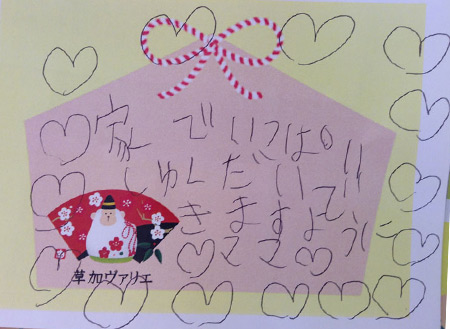 家でいっぱい
しゅくだいで
きますように
ママ
草加ヴァリエ